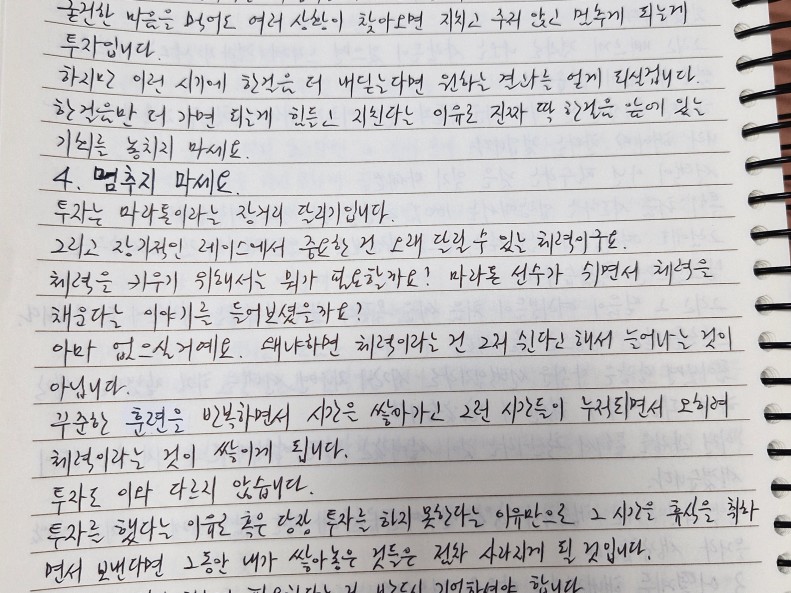 굳건한 마음을 먹어도 여러 상황이 찾아오면 지치고 주저 앉고 멈추게 되는게
투자입니다.
하지만 이런 시기에 한걸음 더 내딛는다면 원하는 결과를 얻게 되실겁니다.
한걸음만 더 가면 되는게 힘들고 지친다는 이유로 진짜 딱 한걸음 앞에 있는
기회를 놓치지 마세요.
4. 멈추지 마세요.
투자는 마라톤이라는 장거리 달리기입니다.
그리고 장기적인 레이스에서 중요한 건 오래 달릴 수 있는 체력이구요.
체력을 키우기 위해서는 뭐가 필요할까요? 마라톤 선수가 쉬면서 체력을
채운다는 이야기를 들어보셨을까요?
아마 없으실거예요. 왜냐하면 체력이라는 건 그저 쉰다고 해서 늘어나는 것이
아닙니다.
꾸준한 훈련을 반복하면서 시간은 쌓아가고 그런 시간들이 누적되면서 오히려
체력이라는 것이 쌓이게 됩니다.
투자도 이와 다르지 않습니다.
투자를 했다는 이유로 혹은 당장 투자를 하지 못한다는 이유만으로 그 시간을 휴식을 취하
면서 보낸다면 그동안 내가 쌓아놓은 것들은 점차 사라지게 될 것입니다.
반드시 기억하셔야 합니다